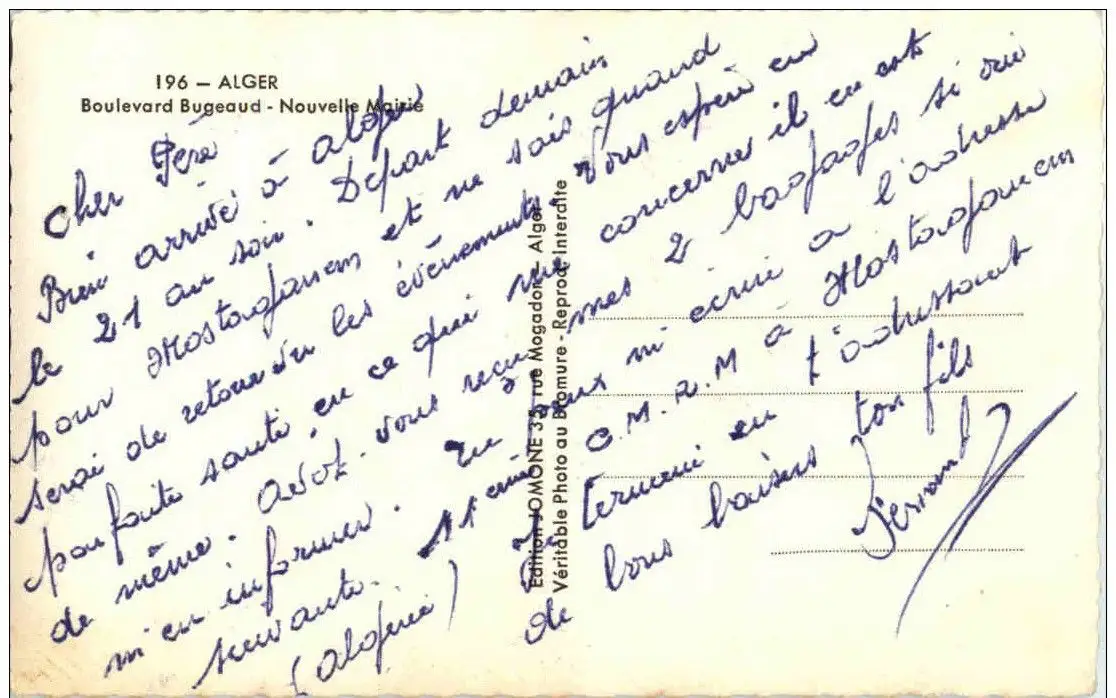 196 – ALGER
Boulevard Bugeaud - Nouvelle Mairie
Edition JOMONE 35, rue Mogador - Alger
Véritable Photo au Bromure - Reprod. Interdite
Cher Père
Bien arrivé à alger
le 21 au soir. Départ demain
pour Mostaganem et ne sais quand
serai de retour vu les événements Vous espère en
parfaite santé, en ce qui me concerne il en est
de même. avez-vous reçu mes 2 bagages si oui
m'en informer. Tu peux m'écrire à l'adresse
suivante. 11 C.M.R.M à Mostaganem
(algérie) Je termine en t'adressant
de bons baisers ton fils
Fernand